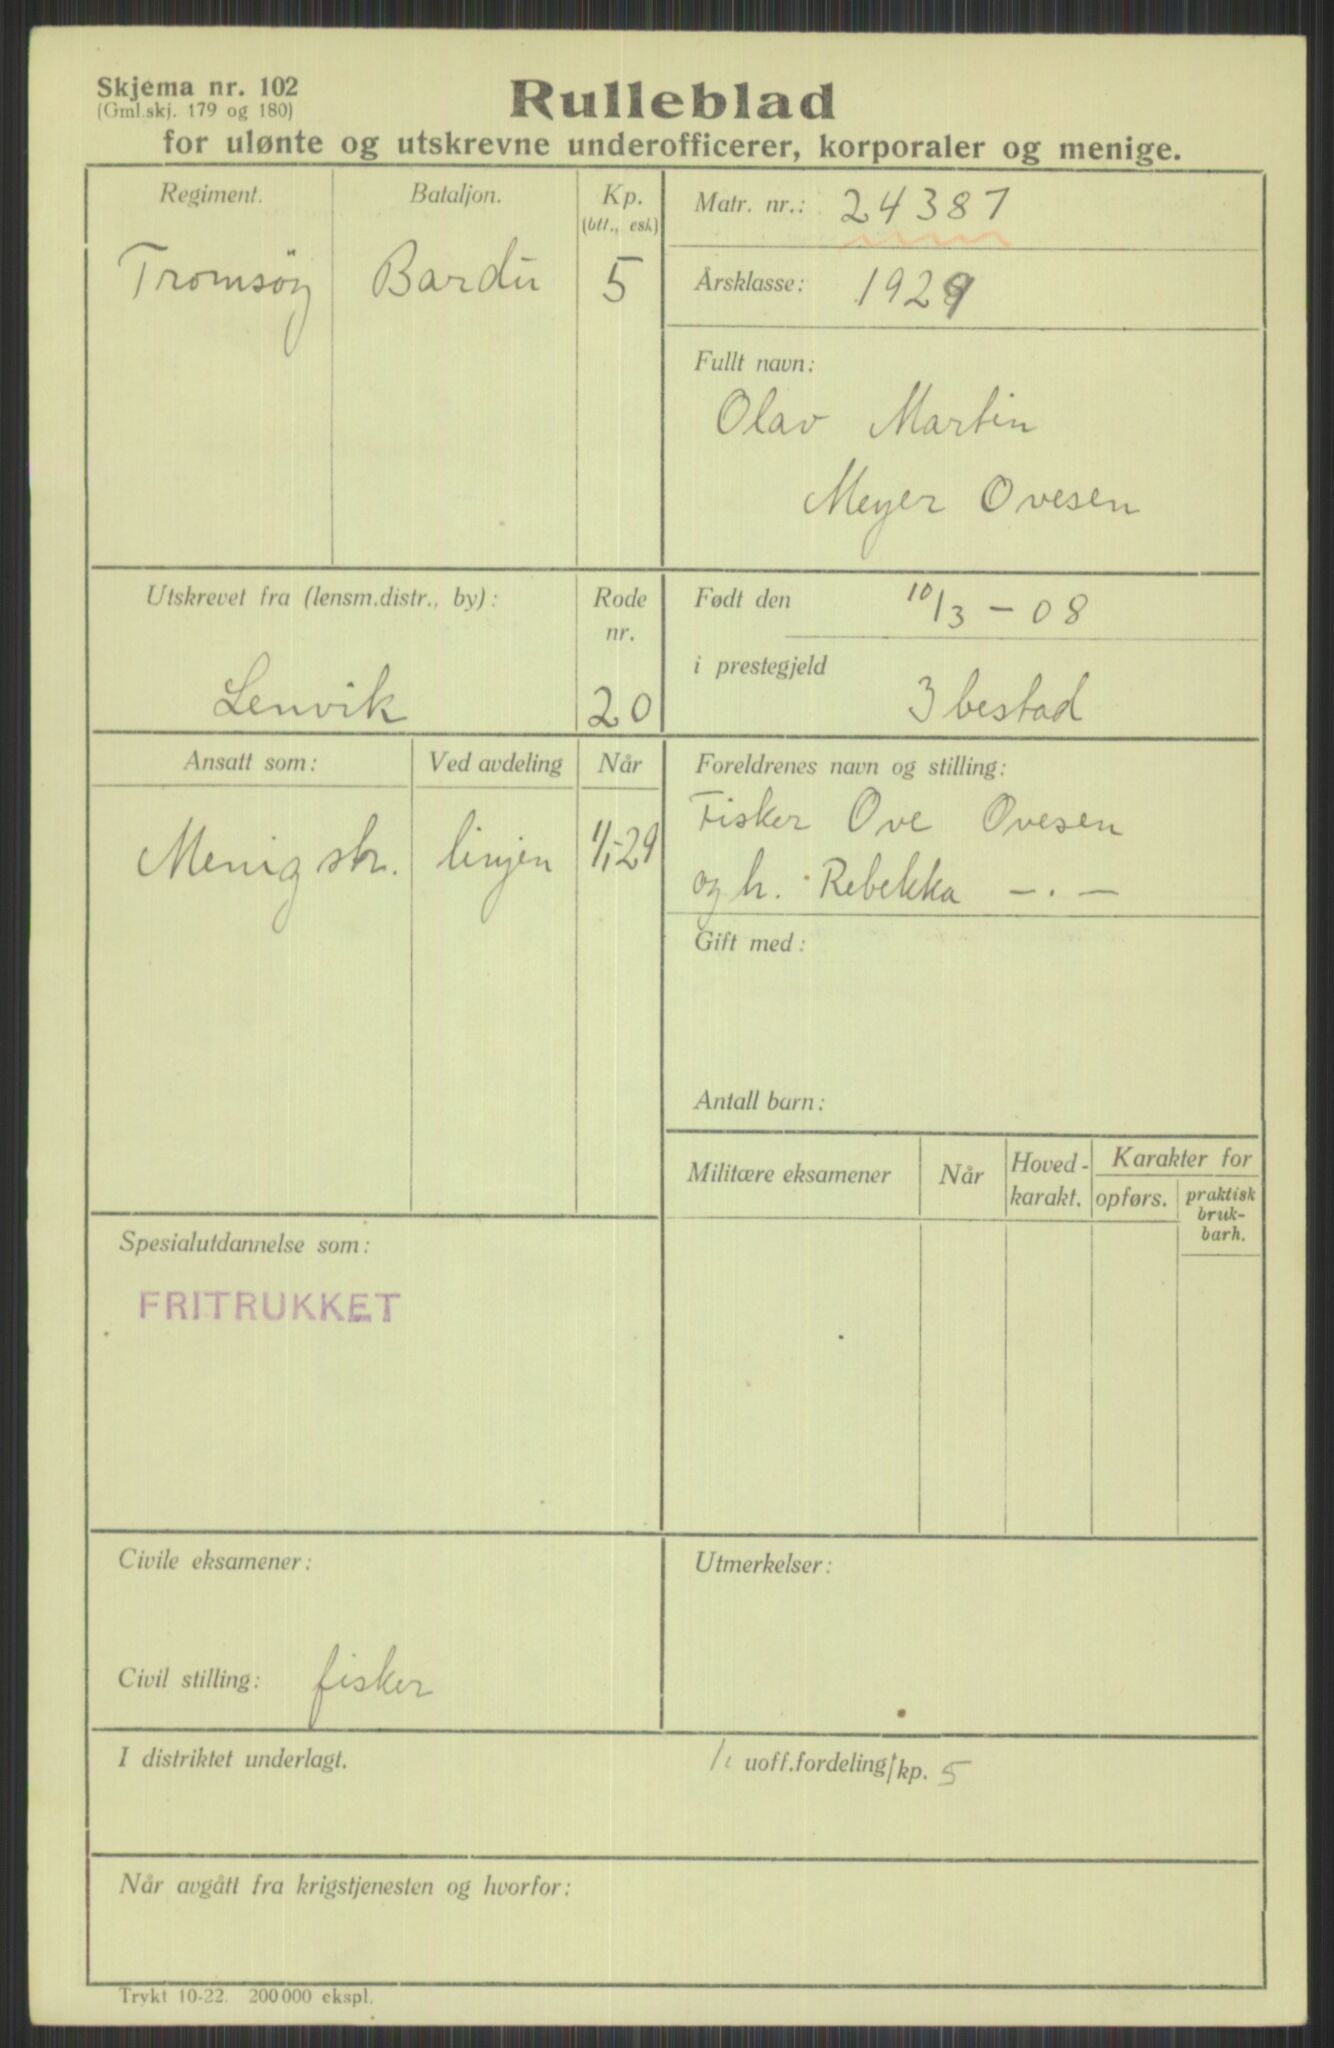 Skjema nr. 102
(Gml.skj. 179 og 180)
Rulleblad
for ulønte og utskrevne underofficerer, korporaler og menige.
Regiment. Bataljon. Kp.
(btt., esk)
Tromsøy Bardu 5
Matr. nr.: 24387
Årsklasse: 1929
Fullt navn:
Olav Martin
Meyer Ovesen
Utskrevet fra (lensm.distr., by): Rode
nr.
Lenvik 20
Født den 10/3 - 08
i prestegjeld
Ibestad
Ansatt som: Ved avdeling Når
Menig str. linjen 1/1-29
Foreldrenes navn og stilling:
Fisker Ove Ovesen
og h. Rebekka — . —
Gift med:
Antall barn:
Militære eksamener Når Hoved-
karakt. Karakter for
opførs. praktisk
bruk-
barh.
Spesialutdannelse som:
FRITRUKKET
Civile eksamener:
Civil stilling: fisker
Utmerkelser:
I distriktet underlagt. uoff.fordeling/kp. 5
Når avgått fra krigstjenesten og hvorfor:
Trykt 10-22. 200 000 ekspl.